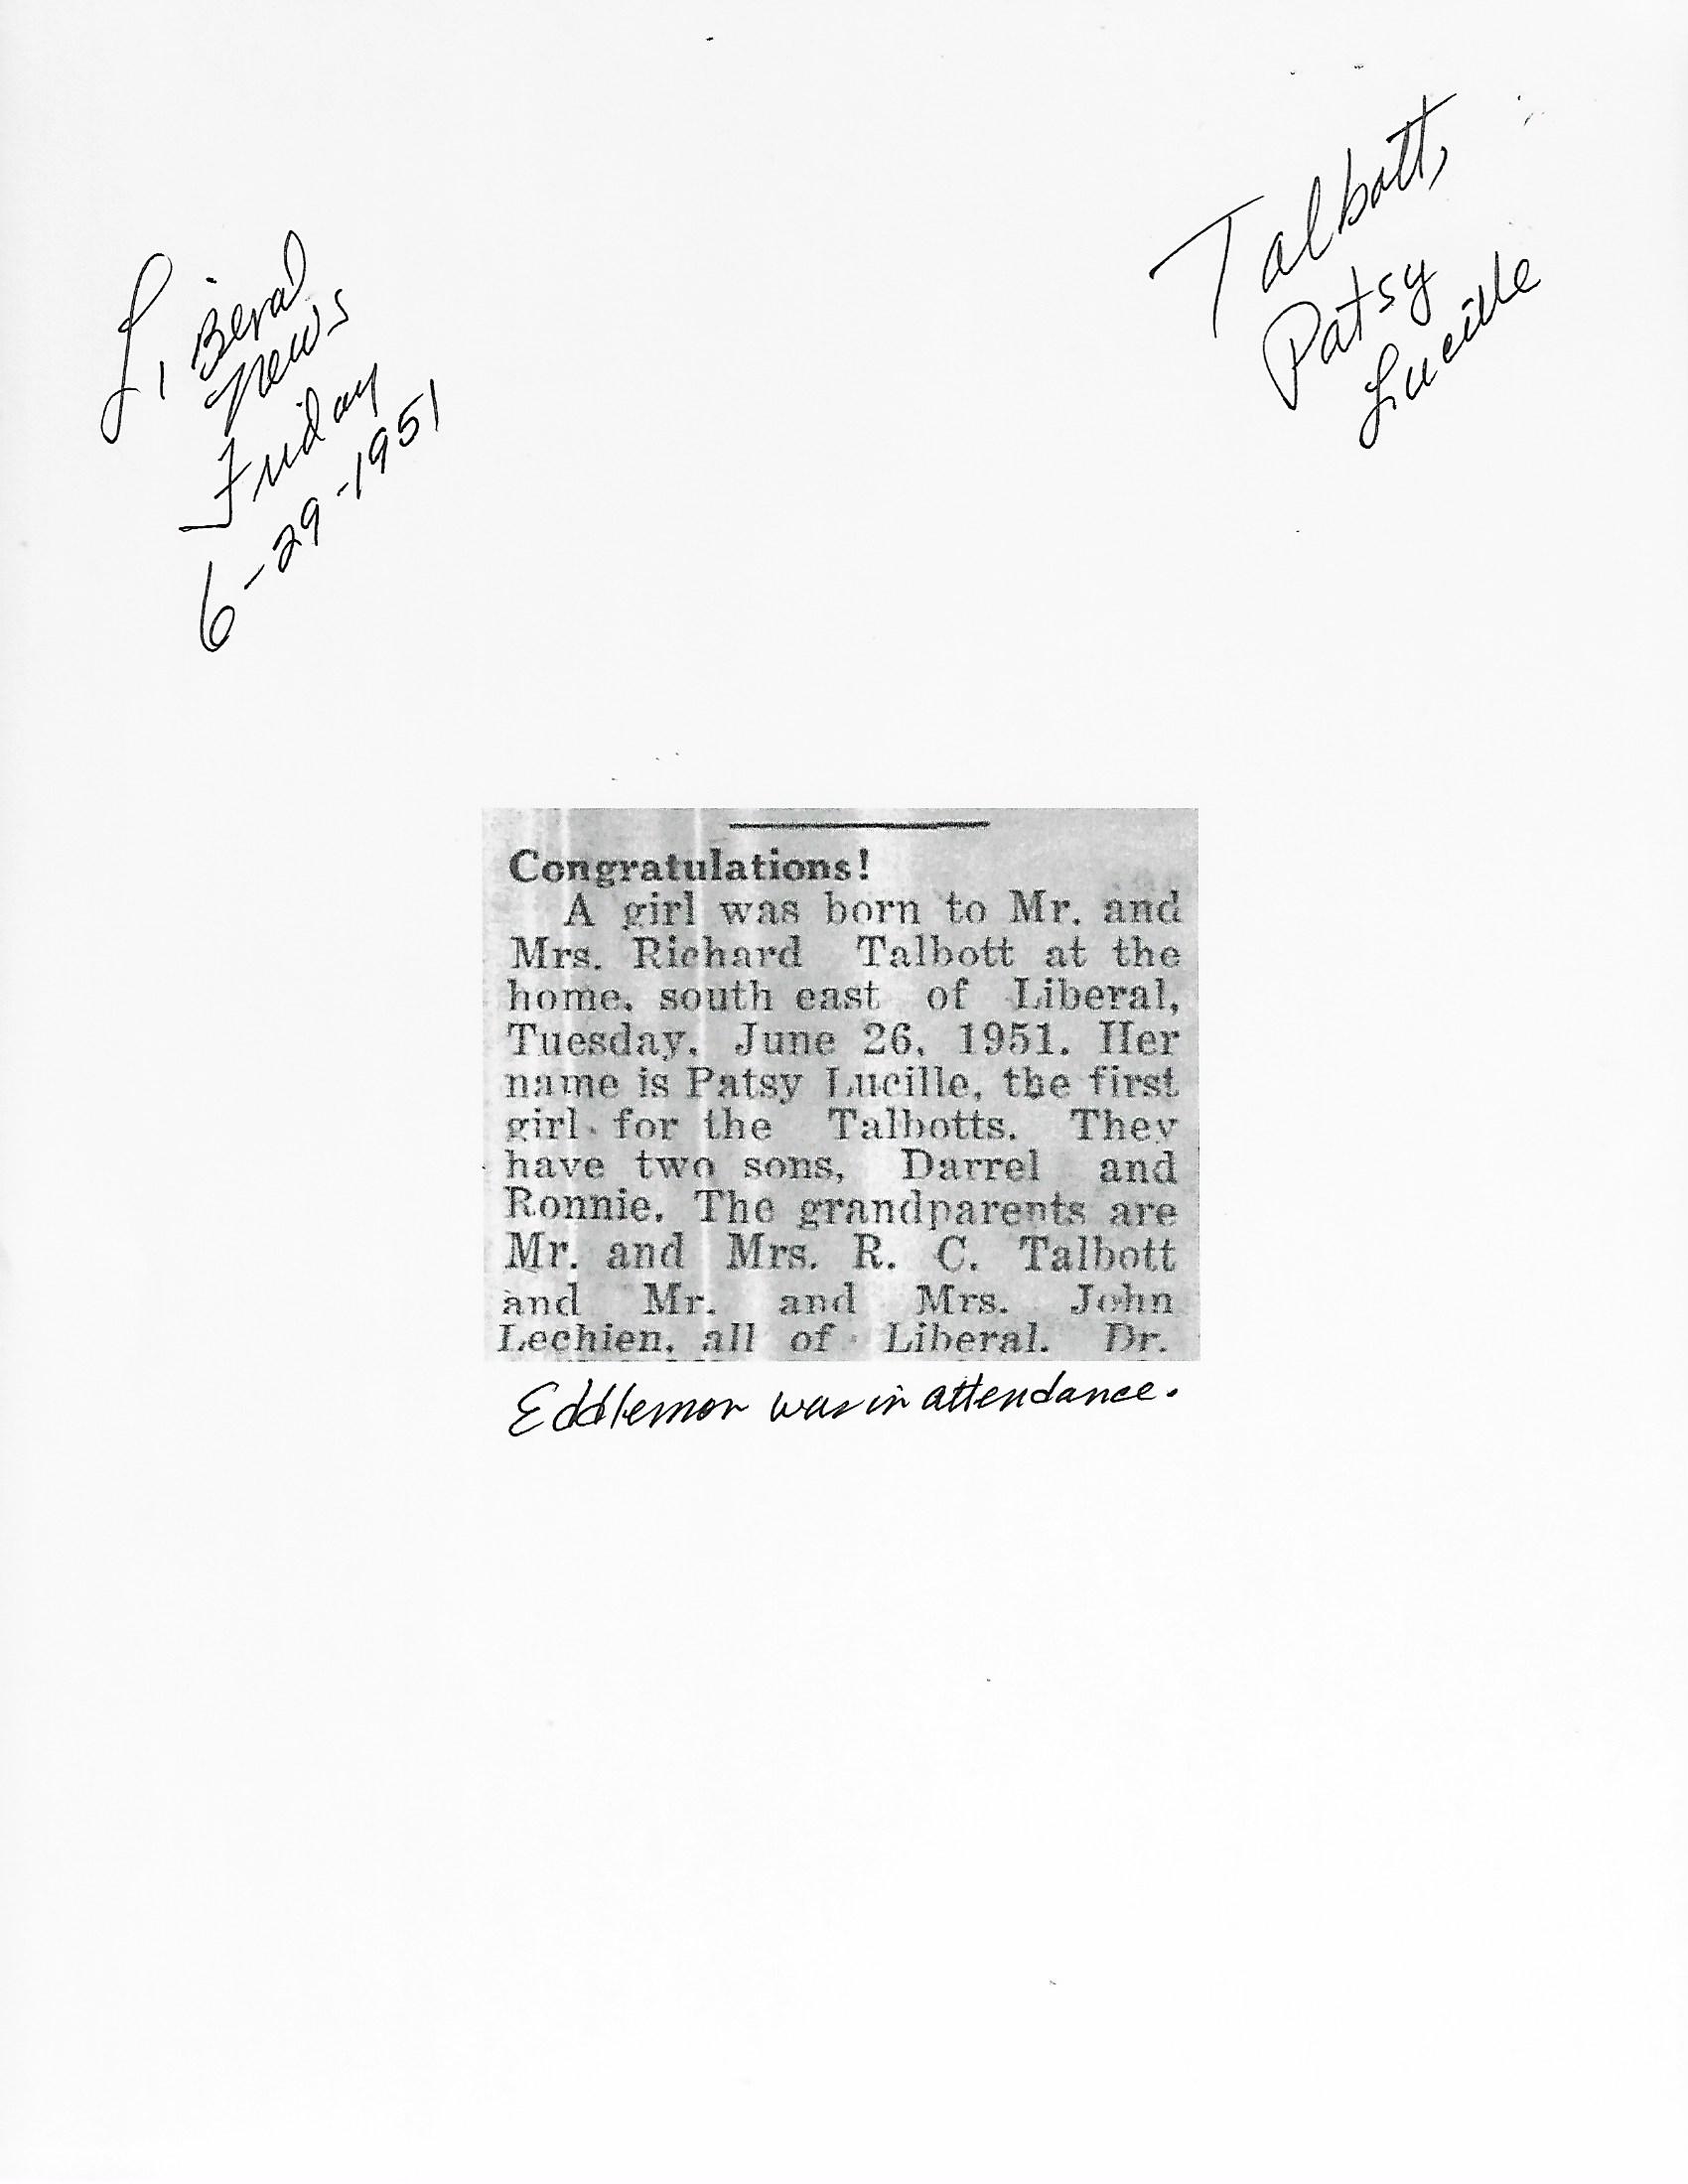 Liberal
News
Friday
6-29-1951
Talbott,
Patsy
Lucille
Congratulations!
A girl was born to Mr. and
Mrs. Richard Talbott at the
home, south east of Liberal,
Tuesday, June 26, 1951. Her
name is Patsy Lucille, the first
girl for the Talbotts. They
have two sons, Darrel and
Ronnie. The grandparents are
Mr. and Mrs. R. C. Talbott
and Mr. and Mrs. John
Lechien, all of Liberal. Dr.
Eddlemon was in attendance.